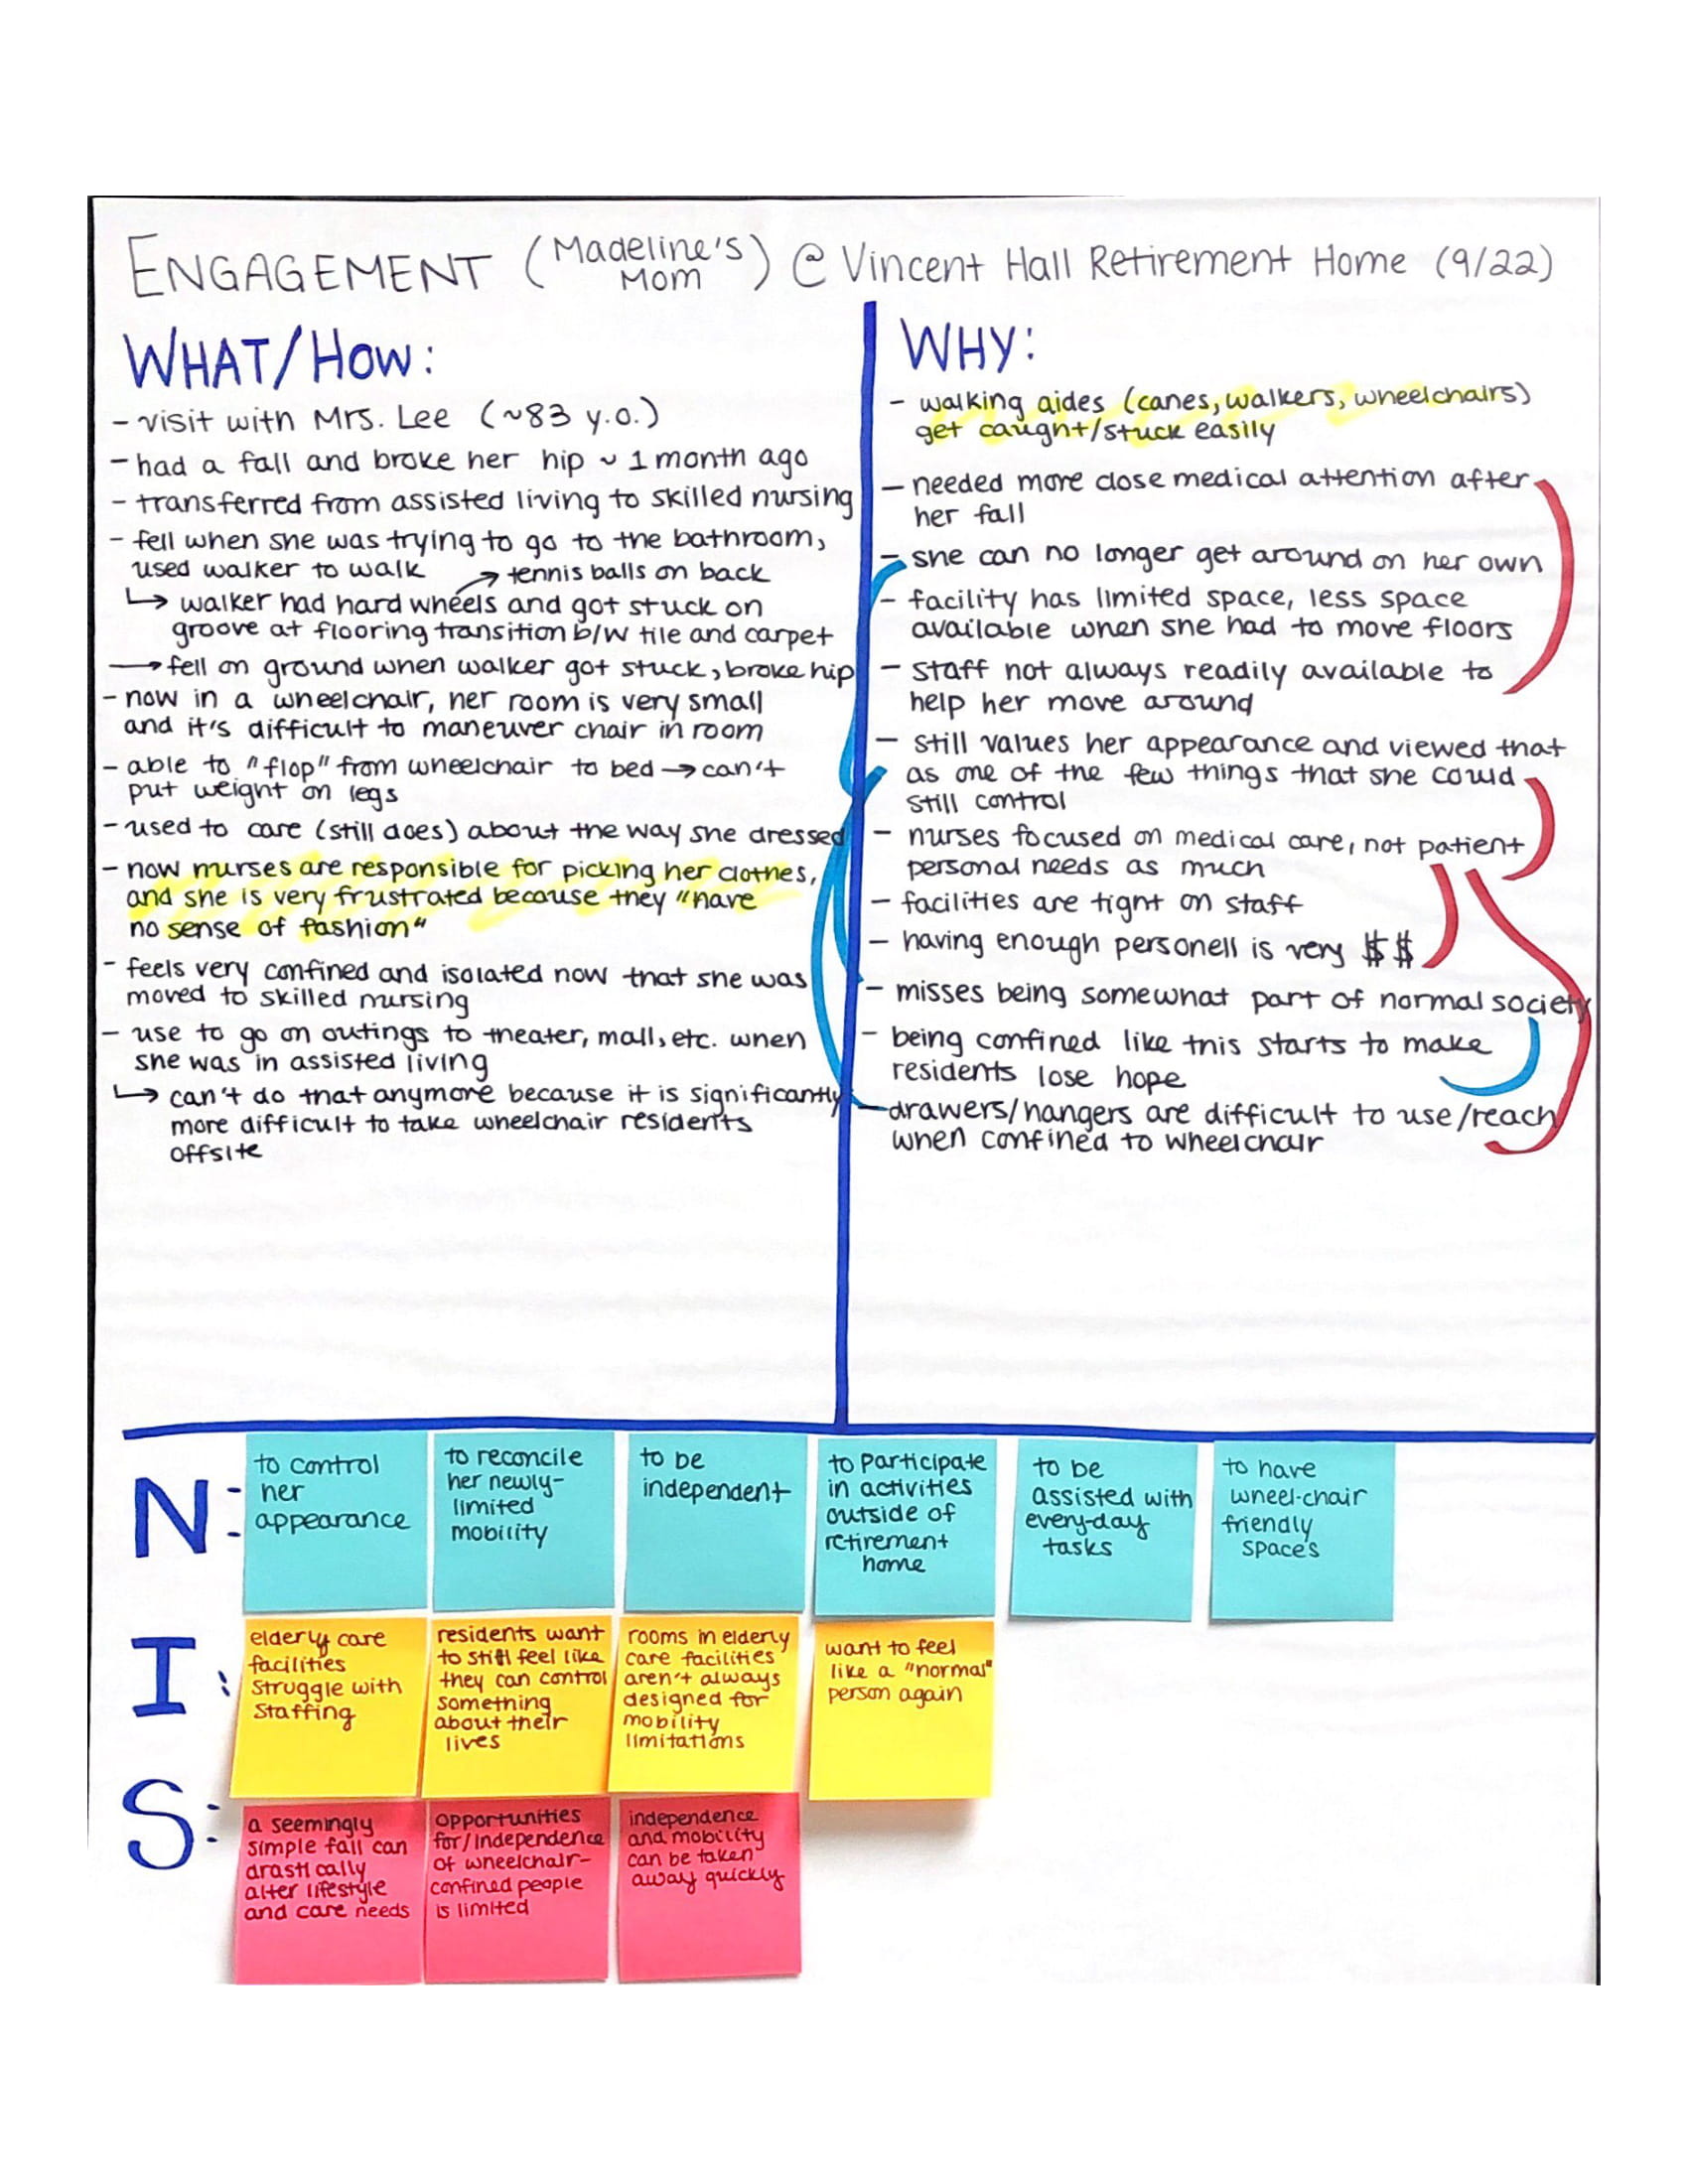 ENGAGEMENT (Madeline's Mom) @ Vincent Hall Retirement Home (9/22)
WHAT/HOW:
- visit with Mrs. Lee (~83 y.o.)
- had a fall and broke her hip ~ 1 month ago
- transferred from assisted living to skilled nursing
- fell when she was trying to go to the bathroom,
used walker to walk → tennis balls on back
↳ walker had hard wheels and got stuck on
groove at flooring transition b/w tile and carpet
→ fell on ground when walker got stuck, broke hip
- now in a wheelchair, her room is very small
and it's difficult to maneuver chair in room
- able to "flop" from wheelchair to bed → can't
put weight on legs
- used to care (still does) about the way she dressed
- now nurses are responsible for picking her clothes,
and she is very frustrated because they "have
no sense of fashion"
- feels very confined and isolated now that she was
moved to skilled nursing
- use to go on outings to theater, mall, etc. when
she was in assisted living
↳ can't do that anymore because it is significantly
more difficult to take wheelchair residents
offsite
WHY:
- walking aides (canes, walkers, wheelchairs)
get caught/stuck easily
- needed more close medical attention after
her fall
- she can no longer get around on her own
- facility has limited space, less space
available when she had to move floors
- staff not always readily available to
help her move around
- still values her appearance and viewed that
as one of the few things that she could
still control
- nurses focused on medical care, not patient
personal needs as much
- facilities are tight on staff
- having enough personell is very $$
- misses being somewhat part of normal society
- being confined like this starts to make
residents lose hope
- drawers/hangers are difficult to use/reach
when confined to wheelchair
N:
to control
her
appearance
to reconcile
her newly-
limited
mobility
to be
independent
to participate
in activities
outside of
retirement
home
to be
assisted with
every-day
tasks
to have
wheel-chair
friendly
spaces
I:
elderly care
facilities
struggle with
staffing
residents want
to still feel like
they can control
something
about their
lives
rooms in elderly
care facilities
aren't always
designed for
mobility
limitations
want to feel
like a "normal"
person again
S:
a seemingly
simple fall can
drastically
alter lifestyle
and care needs
opportunities
for/independence
of wheelchair-
confined people
is limited
independence
and mobility
can be taken
away quickly